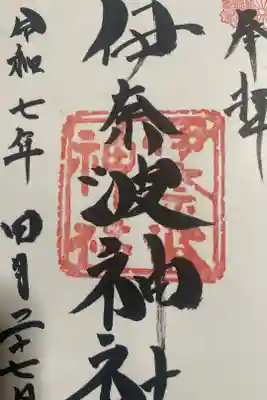 奉拝
伊奈波神社
令和七年四月二十七日
伊奈波神社